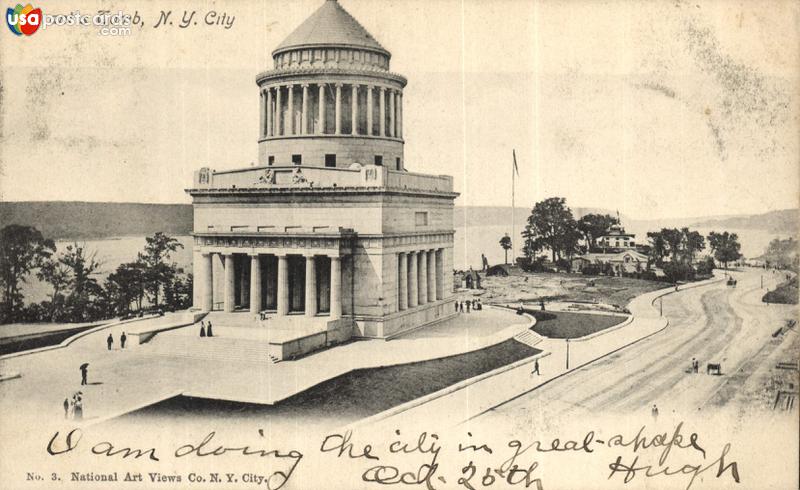 usapostcards.com
Tomb, N. Y. City
I am doing the city in great-shape
Oct-25th Hugh
No. 3. National Art Views Co. N. Y. City.